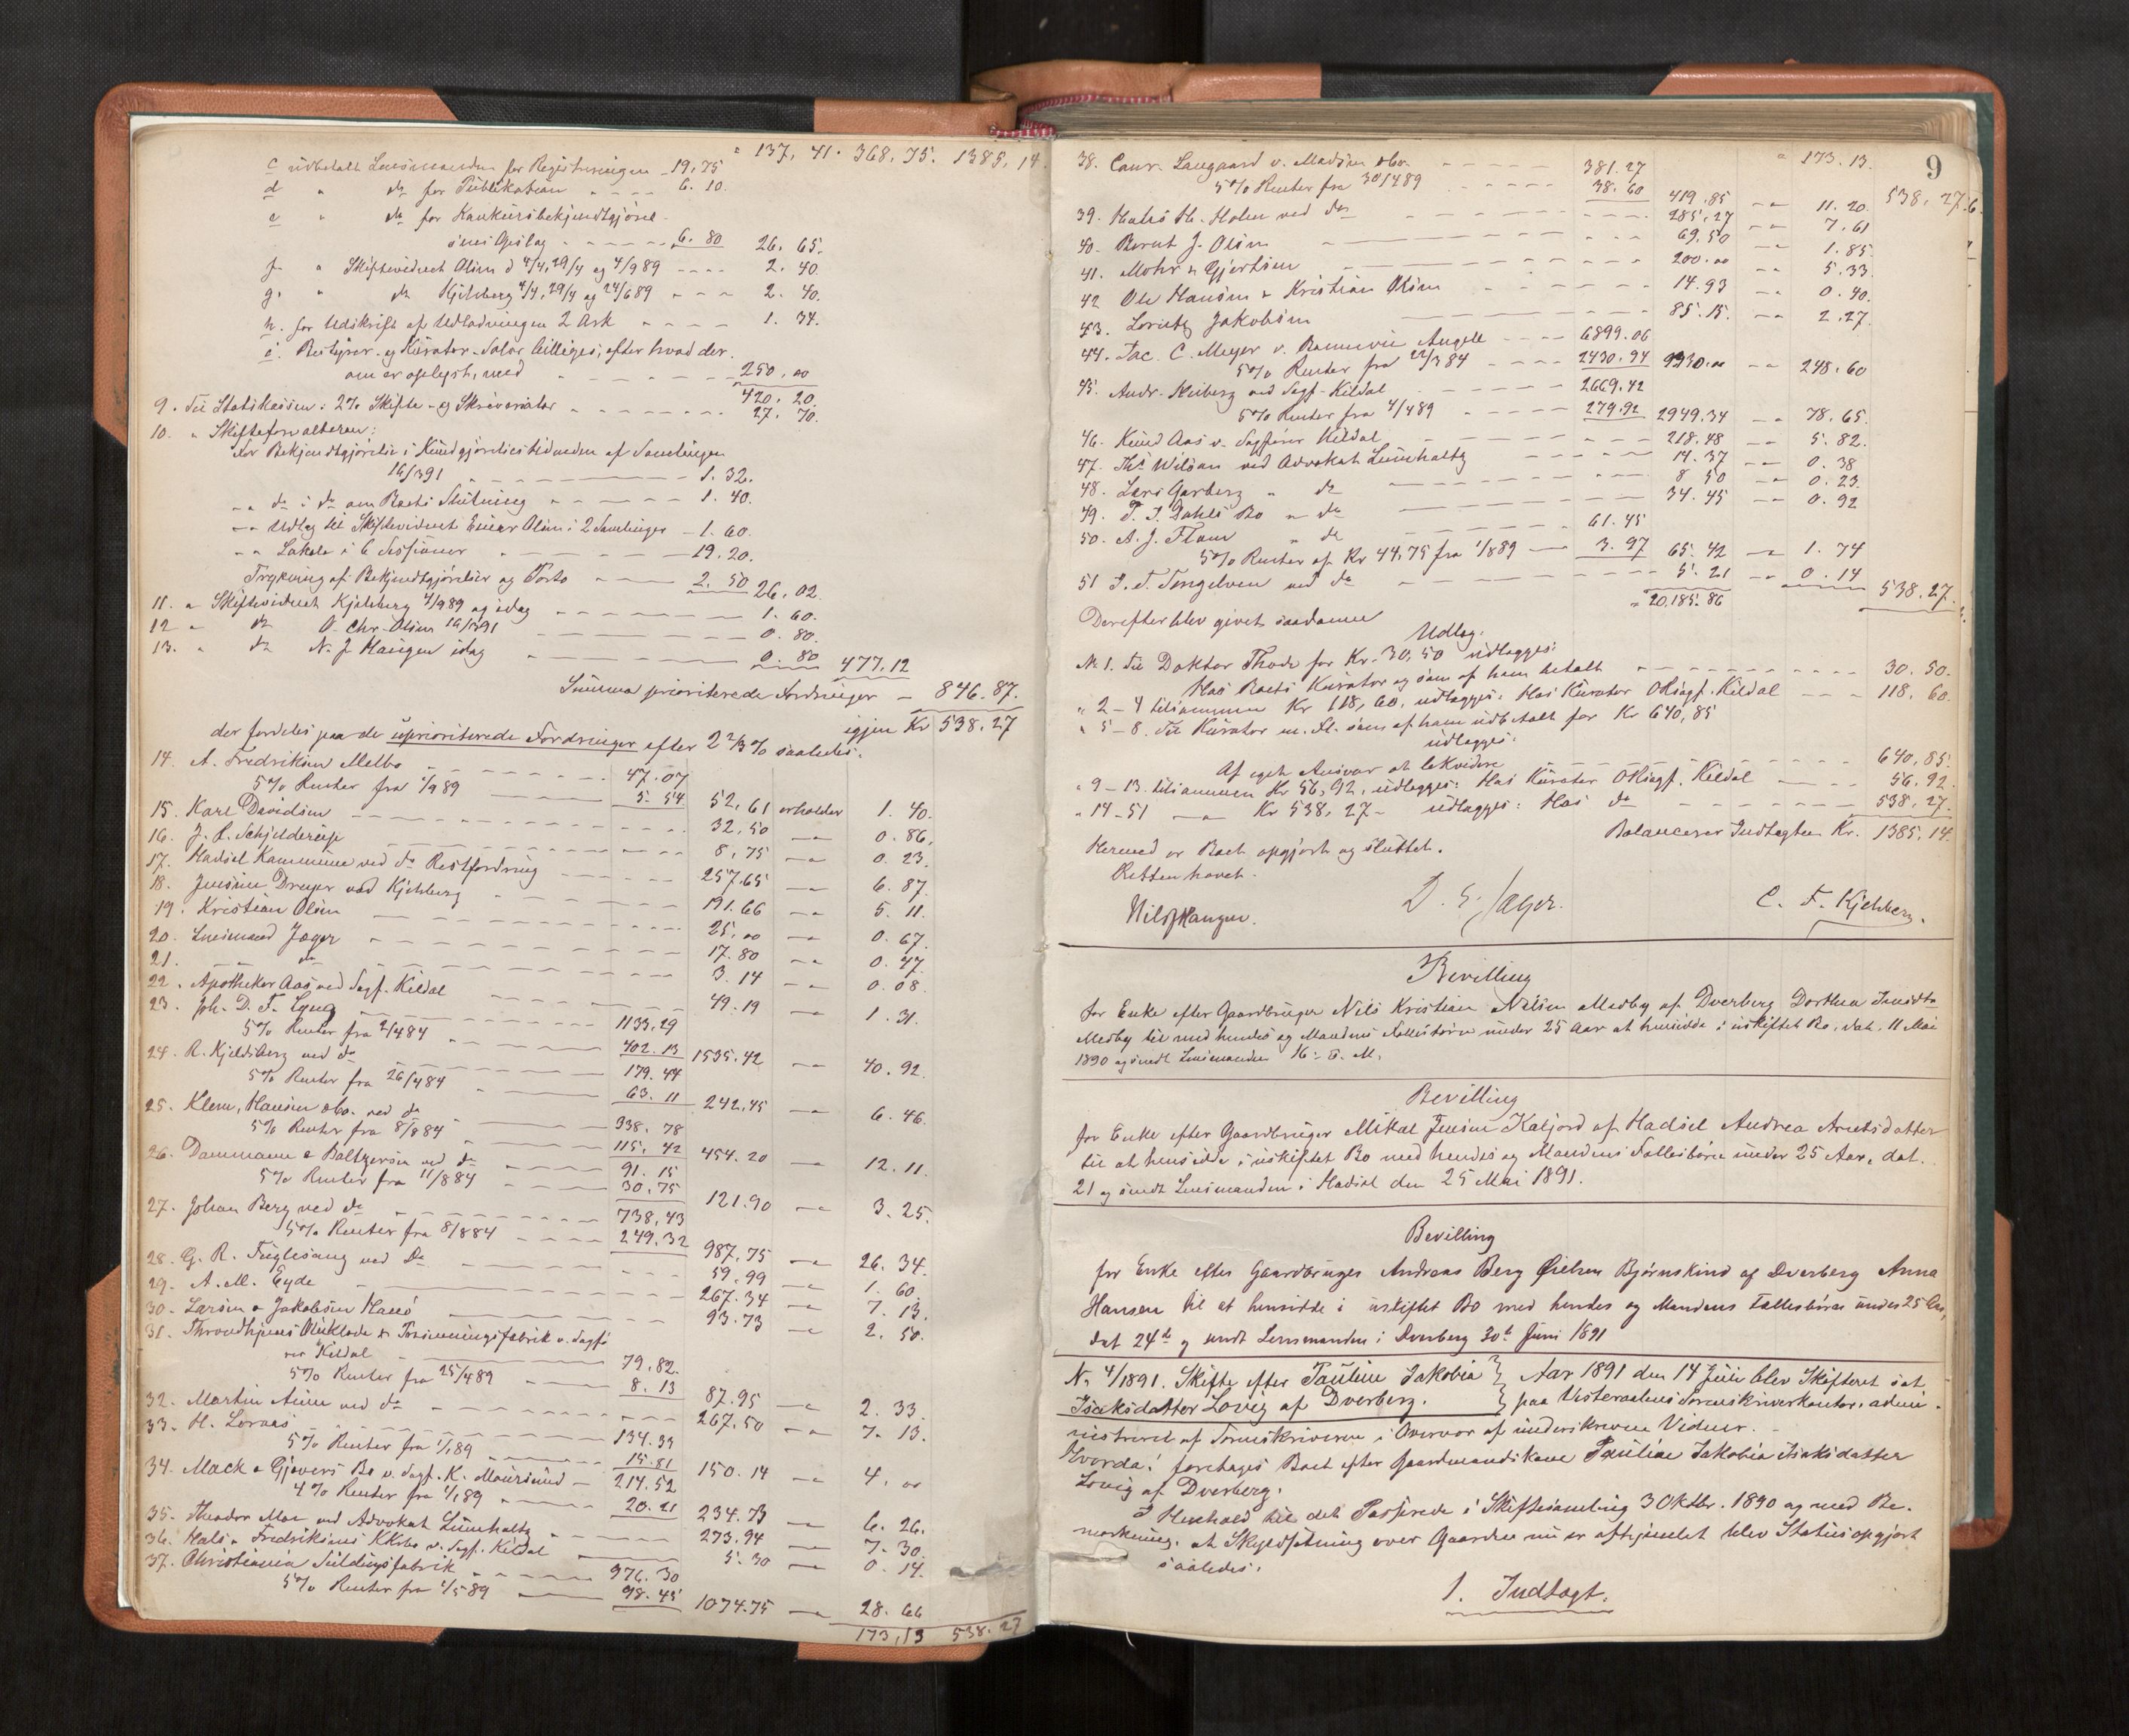 " 137, 41. 368, 75. 1385, 14.
c udbetalt Lensmanden for Registreringen - 19,75
d " do for Publikation - - - - 6. 10.
e " do for Konkursbekjendtgjørel-
sens Opslag - - - - - 6. 80 26, 65.
f. " Skiftevidnet Olsen d 4/4, 29/4 og 4/9 89 - - - - 2. 40.
g. " do Kjelsberg 4/4, 29/4 og 24/6 89 - - - 2. 40.
h. for Udskrift af Udlodningen 2 Ark - - - - 1. 34.
i. Bestyrer- og Kurator-Salær billiges, efter hvad der-
om er oplyst, med - - - - - 250, 00
420. 20.
9. Til Statskassen: 2% Skifte- og Skriversalær - - - - - 27. 70.
10. " Skifteforvalteren:
For Bekjendtgjørelse i Kundgjørelsestidenden af Samlingen
16/3 91 - - - - - 1. 32.
- " do i do om Boets Slutning - - - - - 1. 40.
- " Udlæg til Skiftevidnet Einar Olsen i 2 Samlinger - 1. 60.
- " Lokale i 6 Sessioner - - - - - 19. 20.
Trykning af Bekjendtgjørelser og Porto - - - 2. 50 26, 02.
11. " Skiftevidnet Kjelsberg 4/9 89 og idag - - - - - 1. 60.
12 " do O. Chr. Olsen 16/3 91 - - - - - 0. 80.
13. " do N. J Haugen idag - - - - - 0. 80 477, 12
Summa prioriterede Fordringer - 846. 87.
igjen Kr 538. 27
der fordeles paa de uprioriterede Fordringer efter 2 2/3 % saaledes:
14. A. Fredriksen Melbo - - - - - 47. 07
5% Renter fra 1/9 89 - - - 5. 54 52, 61 erholder 1. 40.
15. Karl Davidsen - - - - - 32. 50 - " 0. 86,
16. J. L. Schjelderup - - - - - 8, 75 - " 0. 23.
17. Hadsel Kommune ved do Restfordring - - - 257. 65 - " 6. 87.
18. Jensine Dreyer ved Kjelsberg - - - - 191. 66 - " 5. 11.
19. Kristian Olsen - - - - - 25, 00 - " 0. 67.
20. Lensmand Jæger - - - - - 17. 80 - " 0. 47.
21. - " do - - - - - 3. 14 - " 0. 08.
22. Apotheker Aas ved Sagf. Kildal - - - - 49. 19 - " 1. 31.
23. Joh. D. F. Lyng - - - - 1133, 29
5% Renter fra 2/4 84 - - - 402. 13 1535. 42 - " 40. 92.
24. R. Kjeldsberg ved do - - - - 179. 44
5% Renter fra 26/4 84 - - - 63. 11 242, 45 - " 6. 46.
25. Klem, Hansen & Co. ved do - - - 338. 78
5% Renter fra 8/8 84 - - - 115, 42 454. 20 - " 12. 11.
26. Dammann & Baltzersen ved do - - - 91. 15
5% Renter fra 11/8 84 - - - 30, 75 121. 90 - " 3. 25.
27. Johan Berg ved do - - - - 738, 43
5% Renter fra 8/8 84 - - - 249. 32 987. 75 - " 26. 34.
28. G. R. Fuglesang ved do - - - - 59, 99 - " 1. 60.
29. A. M. Eyde - - - - - 267. 34 - " 7. 13.
30. Larsen & Jakobsen - - - - 93. 73 - " 2. 50.
31. Throndhjems Oliklæde & v. Sagfø
rer Kildal - - - - 79. 82.
5% Renter fra 25/4 89 - - - 8. 13 87. 95 - " 2. 33.
32. Martin ved do - - - - 267. 50 - " 7. 13.
33. H. Lornæs - - - - 134. 33
5% Renter fra 1/1 89 - - - 15. 81 150. 14 - " 4, 00
34. Mack & Gjævers Bo v. Sagf. K. Moursund - 214. 52
4% Renter fra 1/1 89 - - - 20. 21 234. 73 - " 6. 26.
35. Theodor Moe ved Advokat Lumholtz - - - 273. 94 - " 7. 30.
36. Hals & Fredriksens v. Sagf. Kildal - - - 5. 30 - " 0. 14.
37. Christiania Sildingsfabrik - - - 976. 30
5% Renter fra 1/5 89 - - - 98. 45 1074. 75 - " 28. 66
173, 13 538. 27
9
" 173. 13.
38. Conr. Langaard v. Madsen & Co. - - - - 381. 27
5% Renter fra 30/4 89 - - - - 38. 60 419. 85 - " 11. 20. 538, 27.
39. H. Holen ved do - - - - 285, 27 - " 7. 61
40. Bernt J. Olsen - - - - 69. 50 - " 1. 85.
41. Mohr & Gjertsen - - - - 200. 00 - " 5. 33.
42 Ole Hansen & Kristian Olsen - - - - 14. 93 - " 0. 40.
43. Lorentz Jakobsen - - - - 85. 15. - " 2. 27.
44. Jac. C. Meyer v. - - - - 6899. 06
5% Renter fra 22/3 84 - - - - 2430. 94 9330. 00 - " 248. 60
45. Andr. Heiberg ved Sagf. Kildal - - - - 2669. 42
5% Renter fra 4/4 89 - - - - 279. 92 2949. 34 - " 78. 65.
46. Knud Aas v. Sagfører Kildal - - - - 218. 48 - " 5. 82.
47. Ths Wilson ved Advokat Lumholtz - - - - 14. 37 - " 0. 38
48. Lars Garberg " do - - - - 8 50 - " 0. 23.
49. T. I. Dahls Bo " do - - - - 34. 45 - " 0. 92
50. A. J. Flom " do - - - - 61. 45
5% Renter af Kr 44, 75 fra 1/8 89 - - 3. 97 65. 42 - " 1. 74
51 I. T. Tengelsen ved do - - - - 5. 21 - " 0. 14
" 20,185. 86 538. 27.
Derefter blev givet saadanne
Udlæg.
No 1. Til Doktor Thode for Kr. 30, 50 udlægges:
Hos Boets Kurator og som af ham betalt - - - - 30. 50.
" 2 - 4 tilsammen Kr 118, 60, udlægges: Hos Kurator ORsagf. Kildal - - - 118. 60.
" 5 - 8. Til Kurator m. fl. som af ham udbetalt for Kr 640, 85
udlægges:
Af eget Ansvar at likvidere - - - - 640, 85.
" 9 - 13. tilsammen Kr 56, 92, udlægges: Hos Kurator ORsagf. Kildal - - - 56. 92
" 14 - 51 - " Kr 538, 27 - udlægges: Hos do - - - - 538, 27.
Balancerer Indtægten Kr. 1385, 14.
Hermed er Boet opgjort og sluttet.
Retten hævet.
Nils J Haugen. D. S. Jager. C. F. Kjelsberg.
Bevilling
for Enke efter Gaardbruger Nils Kristian Nilsen Medby af Dverberg Dorthea
Medby til med hendes og Mandens Fællesbørn under 25 Aar at hensidde i uskiftet Bo, dat. 11 Mai
1890 og sendt Lensmanden 16. s. M.
Bevilling
for Enke efter Gaardbruger Mikal Jensen Kaljord af Hadsel Andrea Arntsdatter
til at hensidde i uskiftet Bo med hendes og Mandens Fællesbørn under 25 Aar, dat.
21 og sendt Lensmanden i Hadsel den 25 Mai 1891.
Bevilling
for Enke efter Gaardbruger Andreas Berg Øielsen Bjørnskind af Dverberg Anna
Hansen til at hensidde i uskiftet Bo med hendes og Mandens Fællesbørn under 25 Aar,
dat 24de og sendt Lensmanden i Dverberg 30te Juni 1891
No 4/1891. Skifte efter Pauline Jakobia } Aar 1891 den 14 Juli blev Skifteret sat
Isaksdatter Lovig af Dverberg. } paa Vesteraalens Sorenskriverkontor, admi-
nistreret af Sorenskriveren i Overvær af underskrevne Vidner.
Hvorda: foretoges Boet efter Gaardmandskone Pauline Jakobia Isaksdatter
Lovig af Dverberg.
I Henhold til det Passerede i Skiftesamling 3 Oktbr. 1890 og med Be-
mærkning, at Skyldsætning over Gaarden nu er aftjent blev Status opgjort
saaledes:
1. Indtægt.